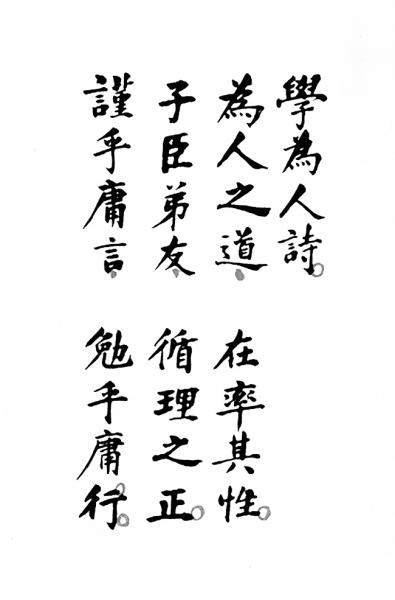 學為人詩
為人之道
在率其性
子臣弟友
循理之正
謹乎庸言
勉乎庸行